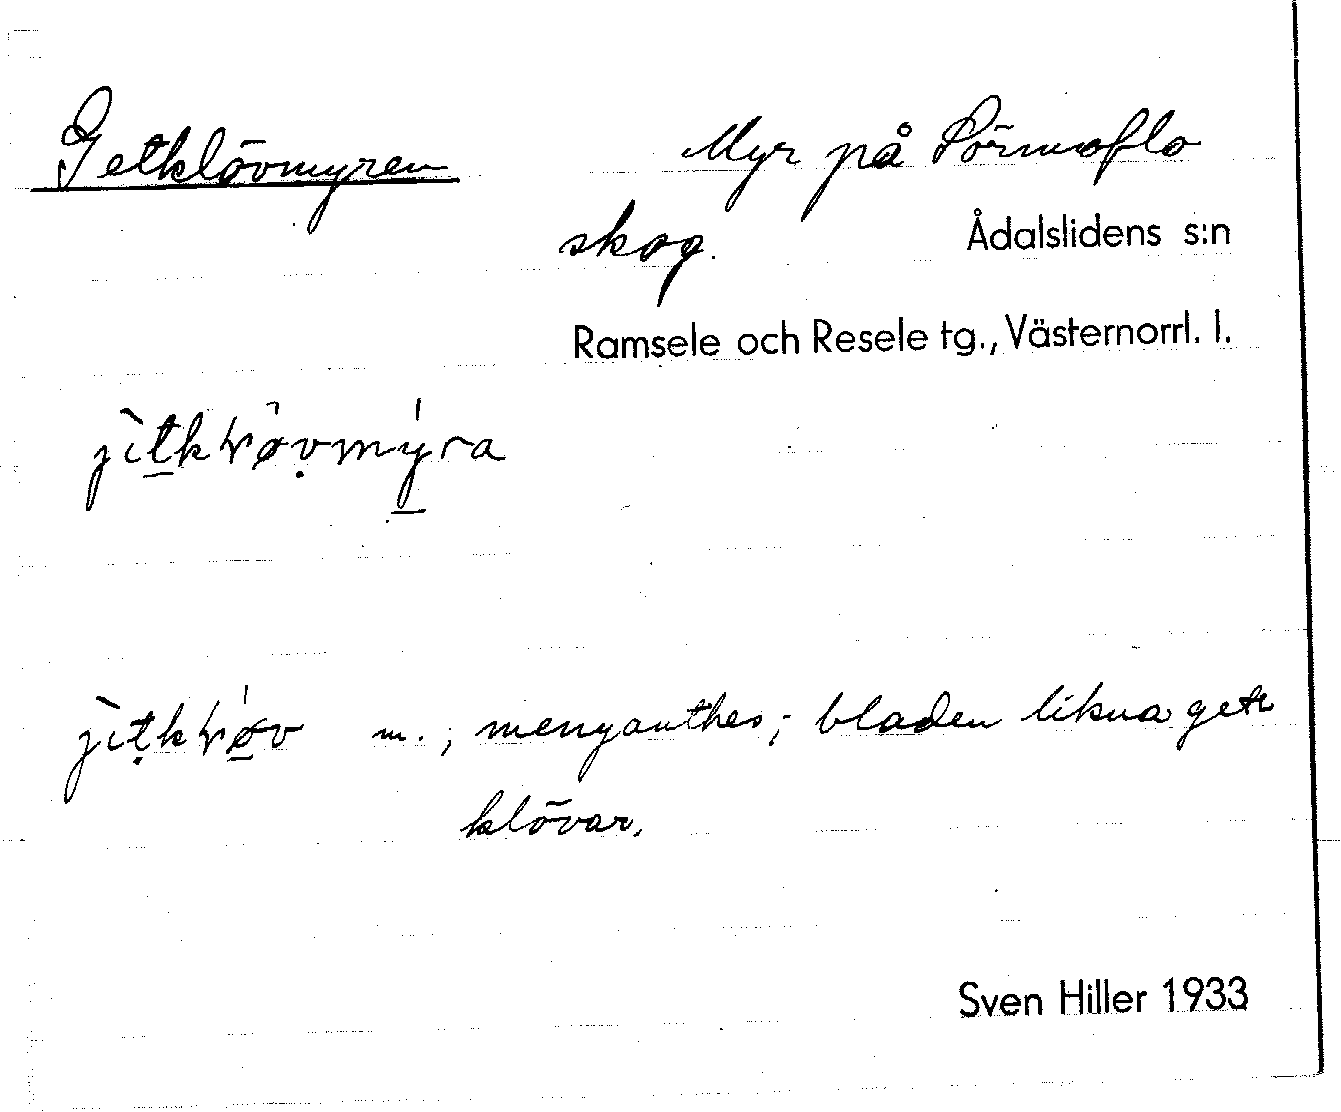 Getklövmyren Myr på Sörmoflo
skog. Ådalslidens s:n
Ramsele och Resele tg., Västernorrl. l.
jìtkløvmýra
jìtkløv m., menyanthes; bladen likna get-
klövar.
Sven Hiller 1933